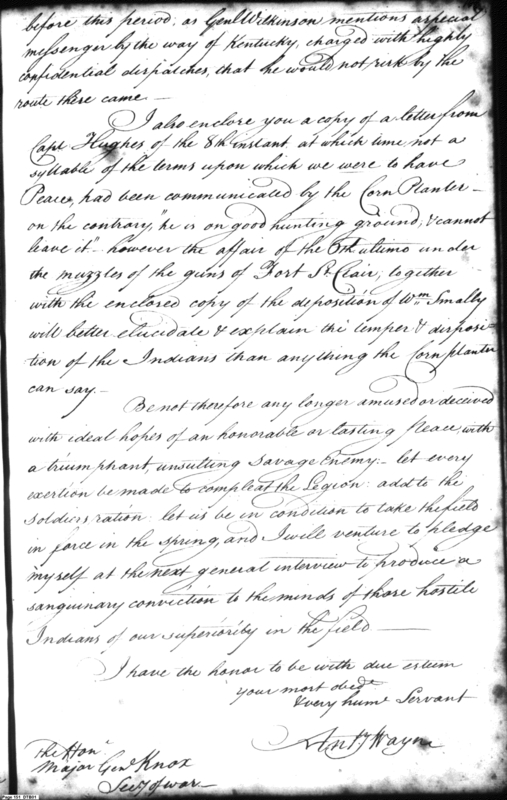 before this period; as Genl. Wilkinson mentions a special
messenger by the way of Kentucky, charged with highly
confidential dispatches, that he would not risk by the
route these came.—
I also enclose you a copy of a letter from
Capt. Hughes of the 8th instant, at which time not a
syllable of the terms upon which we were to have
Peace, had been communicated by the Corn Planter—
on the contrary, "he is on good hunting ground, & cannot
leave it"—however the affair of the 6th ultimo under
the muzzles of the guns of Fort St. Clair, together
with the enclosed copy of the deposition of Wm. Smally
will better elucidate & explain the temper & disposi-
tion of the Indians than any thing the Corn planter
can say.—
Be not therefore any longer amused or deceived
with ideal hopes of an honorable or lasting peace, with
a triumphant, insulting Savage Enemy.—let every
exertion be made to compleat the Legion: add to the
Soldiers ration: let us be in condition to take the field
in force in the spring, and I will venture to pledge
myself at the next general interview to produce a
sanguinary conviction to the minds of those hostile
Indians of our superiority in the field—
I have the honor to be with due esteem
your most obedt.
& very hume. Servant
Anty. Wayne
The Honl.
Major Genl. Knox
Secy. of war—